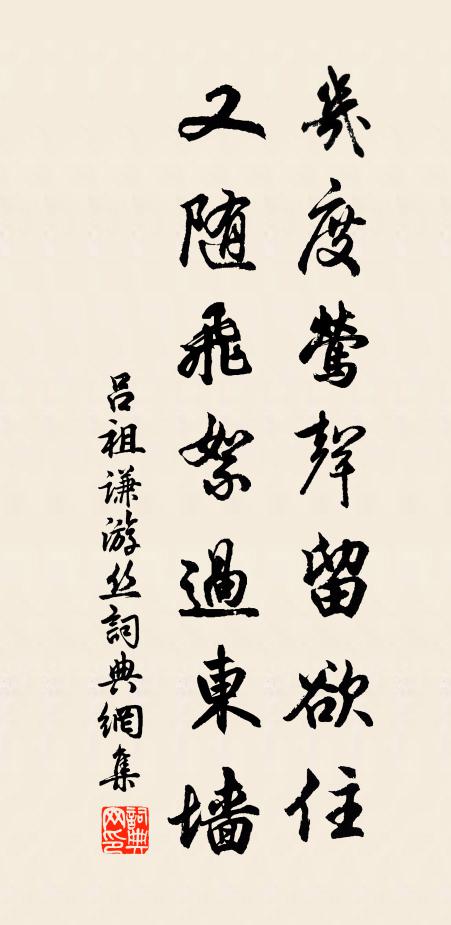 幾度鶯聲留欲住
又随飛絮過東墙
吕祖谦游丝詞典網集
詞典
网印